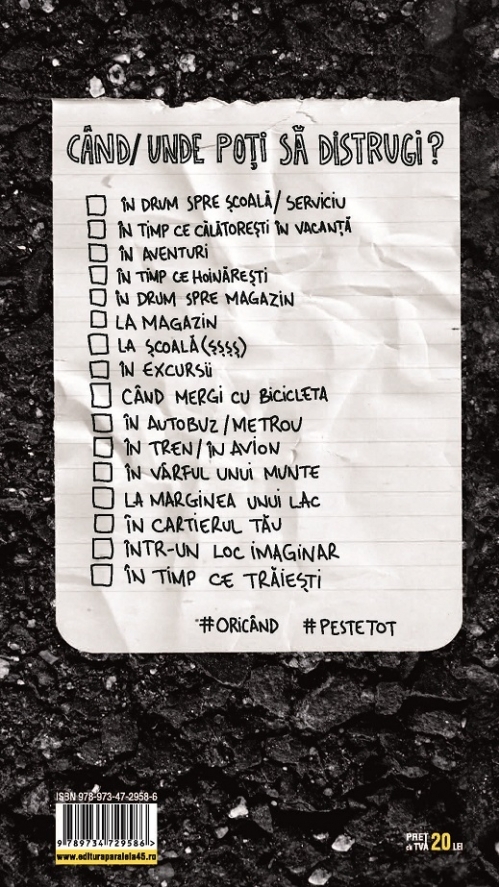 CÂND/UNDE POȚI SĂ DISTRUGI?
ÎN DRUM SPRE ȘCOALĂ/SERVICIU
ÎN TIMP CE CĂLĂTOREȘTI ÎN VACANȚĂ
ÎN AVENTURI
ÎN TIMP CE HOINĂREȘTI
ÎN DRUM SPRE MAGAZIN
LA MAGAZIN
LA ȘCOALĂ (șșșș)
ÎN EXCURSII
CÂND MERGI CU BICICLETA
ÎN AUTOBUZ/METROU
ÎN TREN/ÎN AVION
ÎN VÂRFUL UNUI MUNTE
LA MARGINEA UNUI LAC
ÎN CARTIERUL TĂU
ÎNTR-UN LOC IMAGINAR
ÎN TIMP CE TRĂIEȘTI
#ORICÂND #PESTETOT
ISBN 978-973-47-2958-6
9 789734 729586 >
www.edituraparalela45.ro
PREȚ
cu TVA 20 LEI